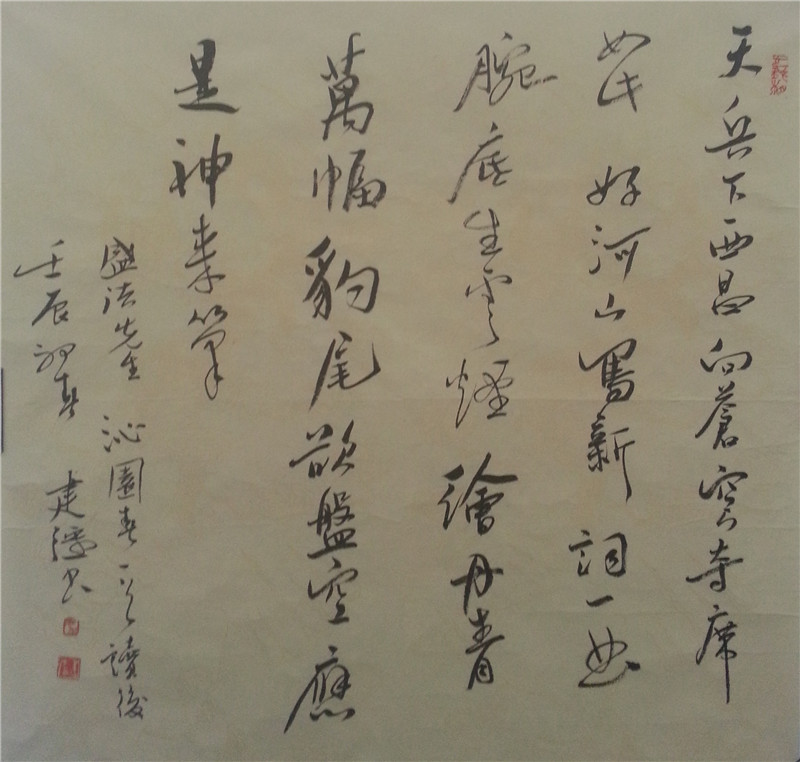 天兵下西昌向蒼穹席
如此好河山寫新詞一曲
腕底生雲煙繪丹青
萬幅豹尾欲盤空應
是神來筆
盛先生沁園春一讀後
壬辰初春 建書